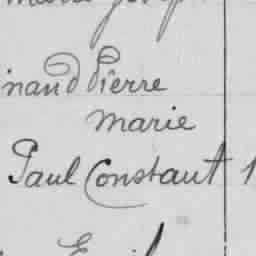 inand Pierre
Marie
Paul Constant 1